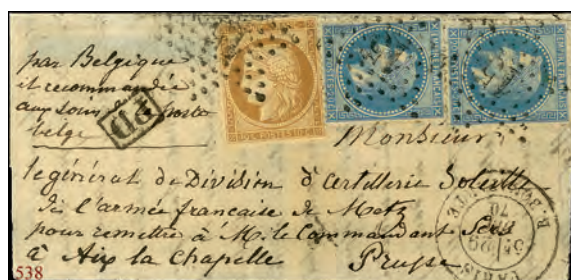 par Belgique
et recommandée
aux soins de la poste
belge
PD
Monsieur
le général de Division d'artillerie Soleille
de l'armée française de Metz
pour remettre à M. le Commandant
à Aix la Chapelle Prusse
10 C. POSTES 10 C.
538